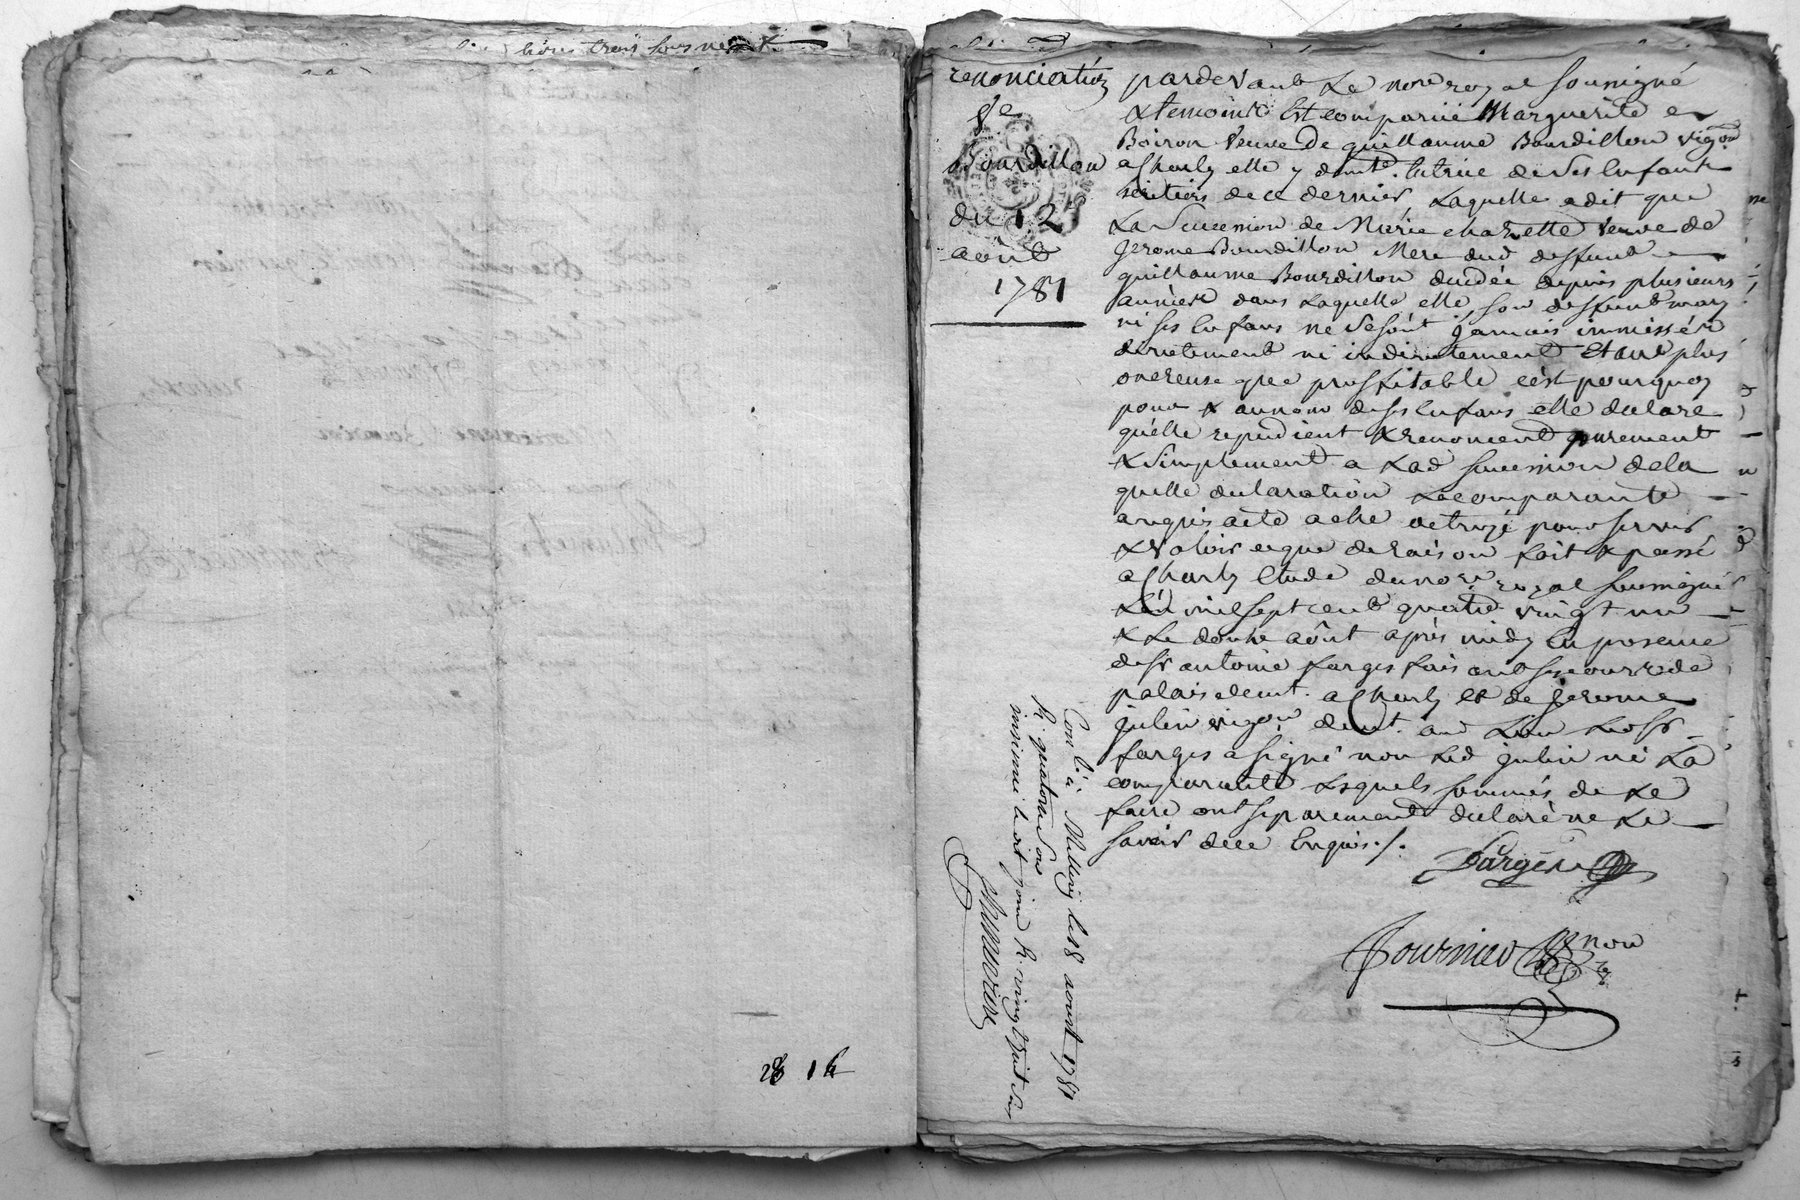 livres trois sous
28 1h
renonciation
Bourdillon
du 12
août
1781
pardevant Le no.re royal soussigné
& temoins Est comparüe Marguerite
Boiron veuve de guillaume Bourdillon vig.on
a Charly elle y dem.te tutrice de ses Enfants
heritiers de ce dernier, Laquelle a dit que
La Succession de Marie charette veuve de
Jerome Bourdillon Mere dud deffunt
guillaume Bourdillon decedée depuis plusieurs
années dans Laquelle elle, son deffunt mary
ni ses Enfans ne se sont jamais immissés
directement ni indirectement Etant plus
onereuse que proffitable c'est pourquoy
pour & au nom de ses Enfans elle declare
qu'elle repudient & renoncent purement
& simplement a Lad succession de la
quelle declaration La comparante
a requis acte a elle octroyé pour servir
& valoir ce que de raison fait & passé
a Charly Etude du no.re royal soussigné
L'an mil sept cent quatre vingt un
& Le douze août après midy En presence
de Sr antoine farges faisant ses cours de
palais dem.t a Charly et de Jerome
julin vigon dem.t aud Lieu Led Sr
farges a signé non Led julin ni La
comparante Lesquels sommés de Le
faire ont separement declaré ne Le
savoir de ce Enquis ./.
Farges
Fournier no.re
Con.lé a Millery le 18 aoust 1781
R. quatorze sous
insinué led jour R. vingt huit sous